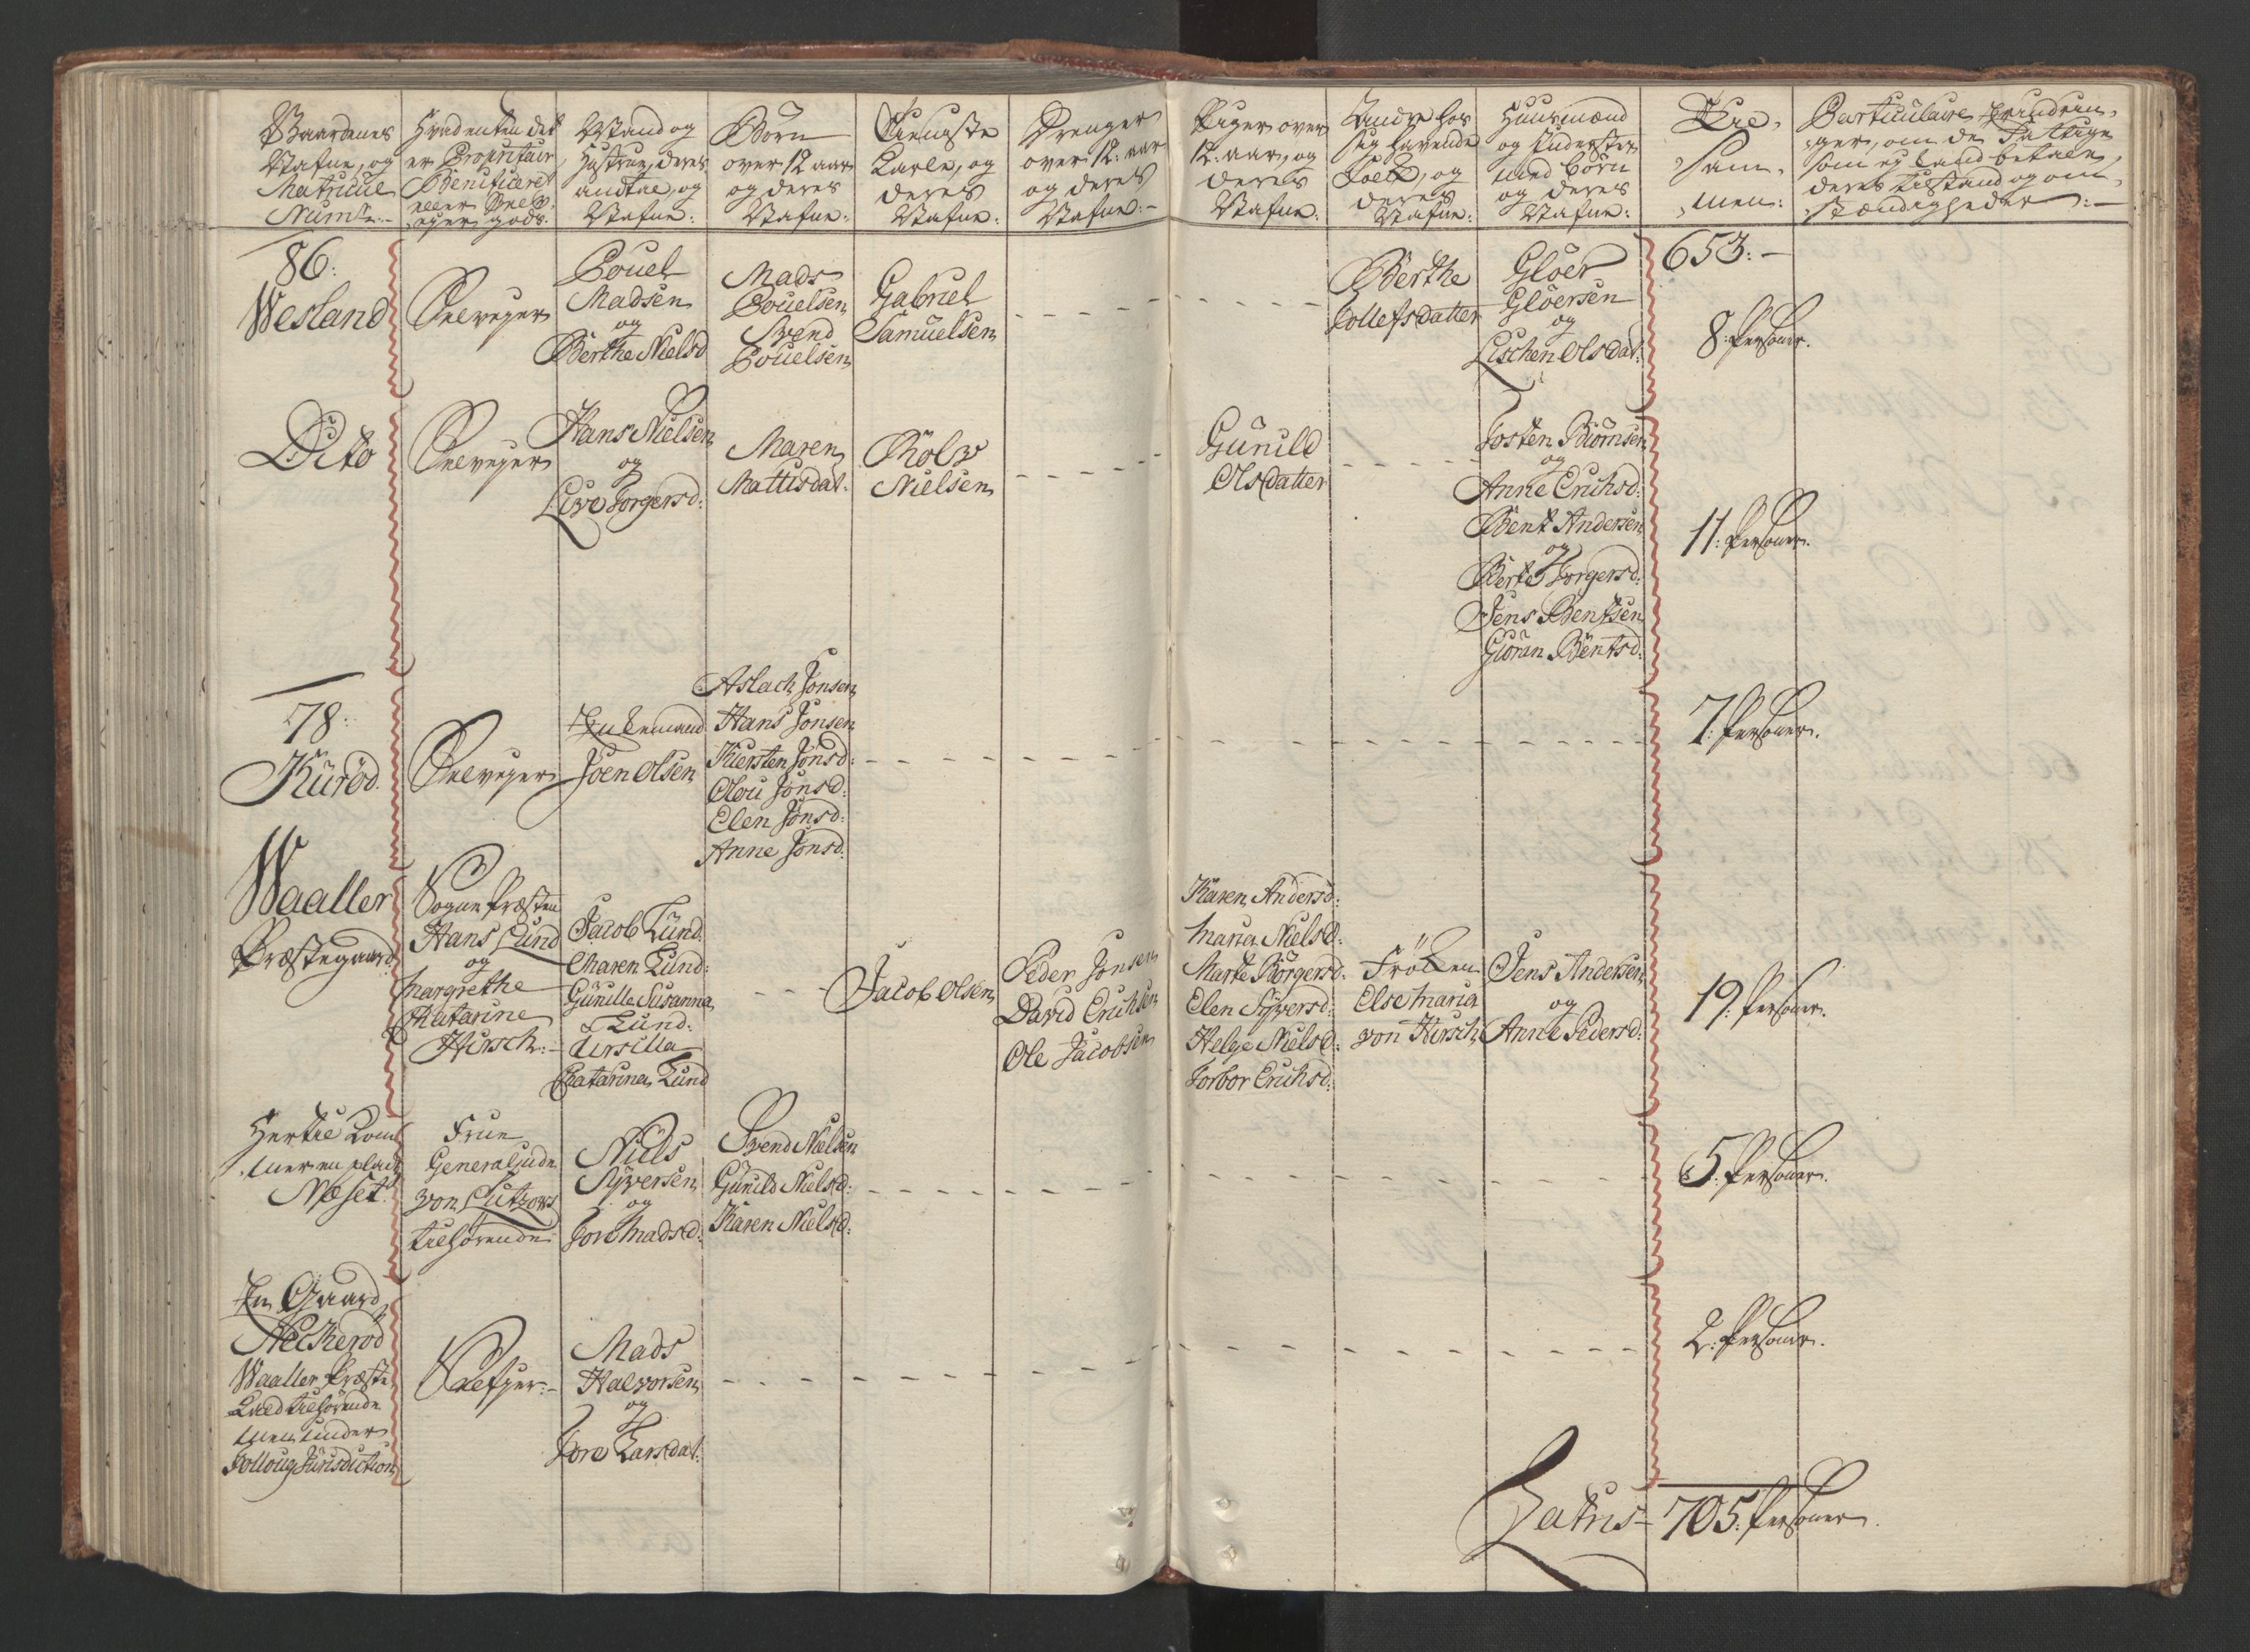 Gaardenes
Nafne, og
Matricul
Num:r
Hvad enten det
er Proprietair
Beneficeret
eller Selv-
eyer gods.
Mand og
Hustrue, deres
andtal, og
Nafne:
Børn
over 12 aar
og deres
Nafne:
Tienniste
Karle, og
deres
Nafne:
Drenger
over 12: aar
og deres
Nafne:
Piger over
12: aar, og
deres
Nafne:
Andre hos
sig havende
Folk, og
deres
Nafne:
Huusmænd
og Inderster
med børn
og deres
Nafne:
Til-
sam-
men:
Particulaire Erindrin-
ger, om de Fattige
som ej kand betale,
deres tilstand og om-
stændigheder:
86:
Wesland
Selveyer
Pouel
Madsen
og
Berthe Nielsd
Mads
Pouelsen
Svend
Pouelsen
Gabriel
Samuelsen
Berthe
Tollefsdatter
Glöer
Glöersen
og
Lischen Olsdat:
653:
8: Personer.
Dito
Selveyer
Hans Nielsen
og
Live Torgersd:
Maren
Mattisdat:
Rolv
Nielsen
Gunild
Olsdatter
Tosten Biörnsen
og
Anne Erichsd:
Bent Andersen
og
Berte Torgersd:
Jens Bentsen
Gjöran Bentsd:
11: Personer.
78:
Kuröd
Selveyer
Enkemand
Joen Olsen
Aslach Jonsen
Hans Jonsen
Kiersten Jonsd:
Olou Jonsd:
Elen Jonsd:
Anne Jonsd:
7: Personer.
Waaller
Præstegaard
Sogne Præsten
Hans Lund
og
Margrethe
Chatarine
Hirsch:
Jacob Lund
Maren Lund:
Gunille Susanna
Lund:
Zirsilla
Chatarina Lund
Jacob Olsen
Peder Jonsen
David Erichsen
Ole Jacobsen
Karen Andersd:
Maria Nielsd:
Marte Börgersd:
Elen Syversd:
Helge Nielsd:
Torbor Erichsd:
Fröken
Else Maria
von Hirsch
Jens Andersen
og
Anne Pedersd:
19: Personer.
Hertil Kom-
mer en plads
Næset:
Frue
Generalinde
von Lutzows
tilhørende
Niels
Syversen
og
Tore Madsd:
Svend Nielsen
Gunild Nielsd:
Karen Nielsd:
5: Personer.
En Gaard
Neskeröd
Waaller Præste
Kald tilhørende
men under
Folloug Jurisdiction
Selfeyer:
Mads
Halvorsen
og
Tore Larsdat:
2: Personer.
Latus 705: Personer.